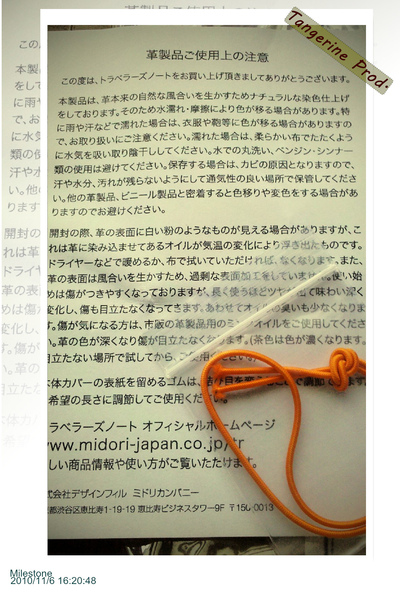 Tangerine Prod.
革製品ご使用上の注意
この度は、トラベラーズノートをお買い上げ頂きましてありがとうございます。
本製品は、革本来の自然な風合いを生かすためナチュラルな染色仕上げ
をしております。そのため水濡れ・摩擦により色が移る場合があります。特
に雨や汗などで濡れた場合は、衣服や鞄等に色が移る場合がありますの
で、お取り扱いにご注意ください。濡れた場合は、柔らかい布でたたくよう
に水気を吸い取り陰干ししてください。水での丸洗い、ベンジン・シンナー
類の使用は避けてください。保存する場合は、カビの原因となりますので、
汗や水分、汚れが残らないようにして通気性の良い場所で保管してくださ
い。他の革製品、ビニール製品と密着すると色移りや変色をする場合があ
りますのでお避けください。
開封の際、革の表面に白い粉のようなものが見える場合がありますが、こ
れは革に染み込ませてあるオイルが気温の変化により浮き出たものです。
ドライヤーなどで暖めるか、布で拭いていただければ、なくなります。また、
革の表面は風合いを生かすため、過剰な表面加工をしていません。使い始
めは傷がつきやすくなっておりますが、長く使うほどツヤが出て味わい深く
変化し、傷も目立たなくなってきます。あわせてオイルの臭いも少なくなりま
す。傷が気になる方は、市販の革製品用のミンクオイルをご使用してくださ
い。革の色が深くなり傷が目立たなくなります。(茶色は色が濃くなります。
目立たない場所で試してから、ご使用ください。)
本体カバーの表紙を留めるゴムは、結び目を変えることで調節できます。
希望の長さに調節してご使用ください。
ラベラーズノート オフィシャルホームページ
www.midori-japan.co.jp/tr
しい商品情報や使い方がご覧いただけます。
式会社デザインフィル ミドリカンパニー
都渋谷区恵比寿1-19-19 恵比寿ビジネスタワー9F 〒150-0013
Milestone
2010/11/6 16:20:48